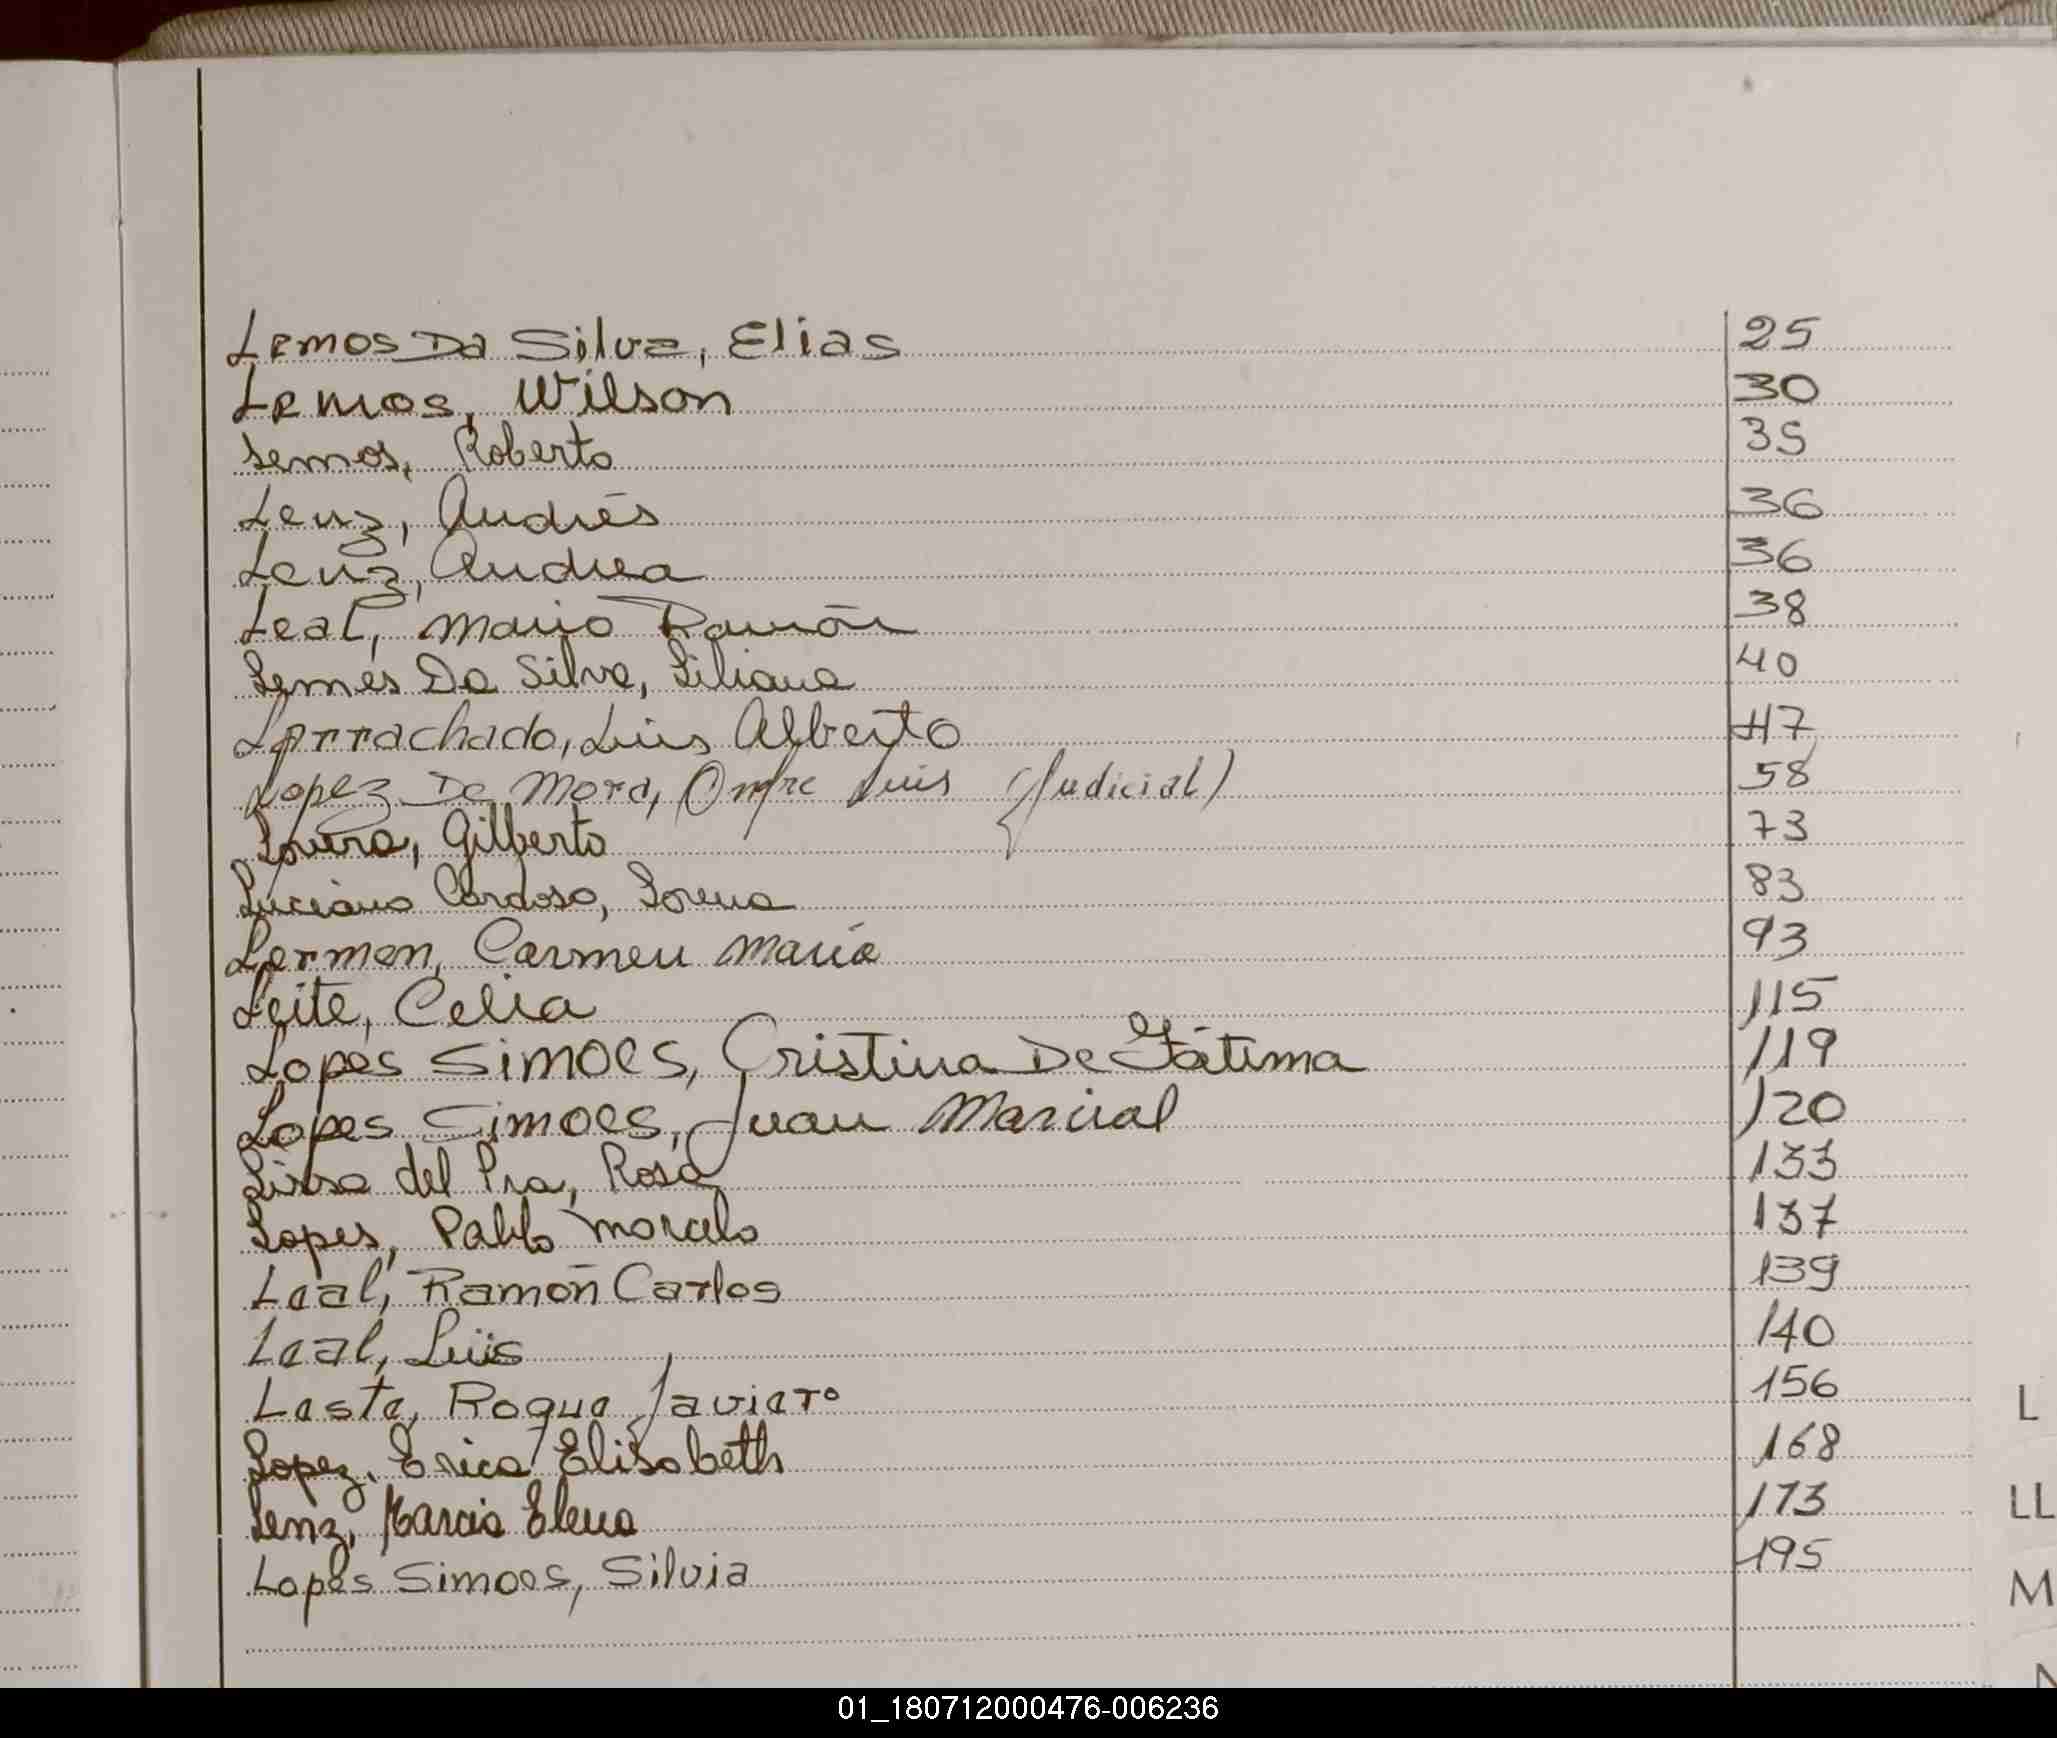 Lemos Da Silva, Elias 25
Lemos, Wilson 30
Lemos, Roberto 35
Lenz, Andrés 36
Lenz, Andrea 36
Leal, Mario Ramón 38
Lemes Da Silva, Liliana 40
Larrachado, Luis Alberto 47
Lopez De Mora, Luis (Judicial) 58
Gilberto 73
Luciano Cardoso, Lorena 83
Lermen, Carmen María 93
Leite, Celia 115
Lopes Simoes, Cristina De Fátima 119
Lopes Simoes, Juan Marcial 120
del Pra, Rosa 133
Lopes, Pablo Marcelo 137
Leal, Ramón Carlos 139
Leal, Luis 140
Leste, Roque Javier 156
L
Lopez, Erica Elisabeth 168
Lenz, Marcia Elena 173
LL
Lopes Simoes, Silvia 195
M
01_180712000476-006236